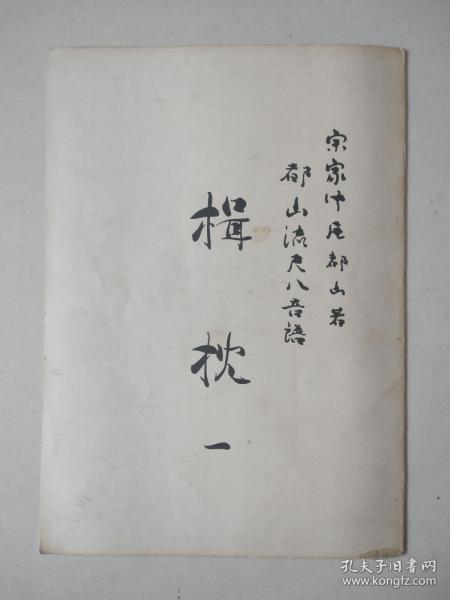 宗家中尾都山著
都山流尺八音譜
楫枕
一
孔夫子旧书网
www.kongfz.com